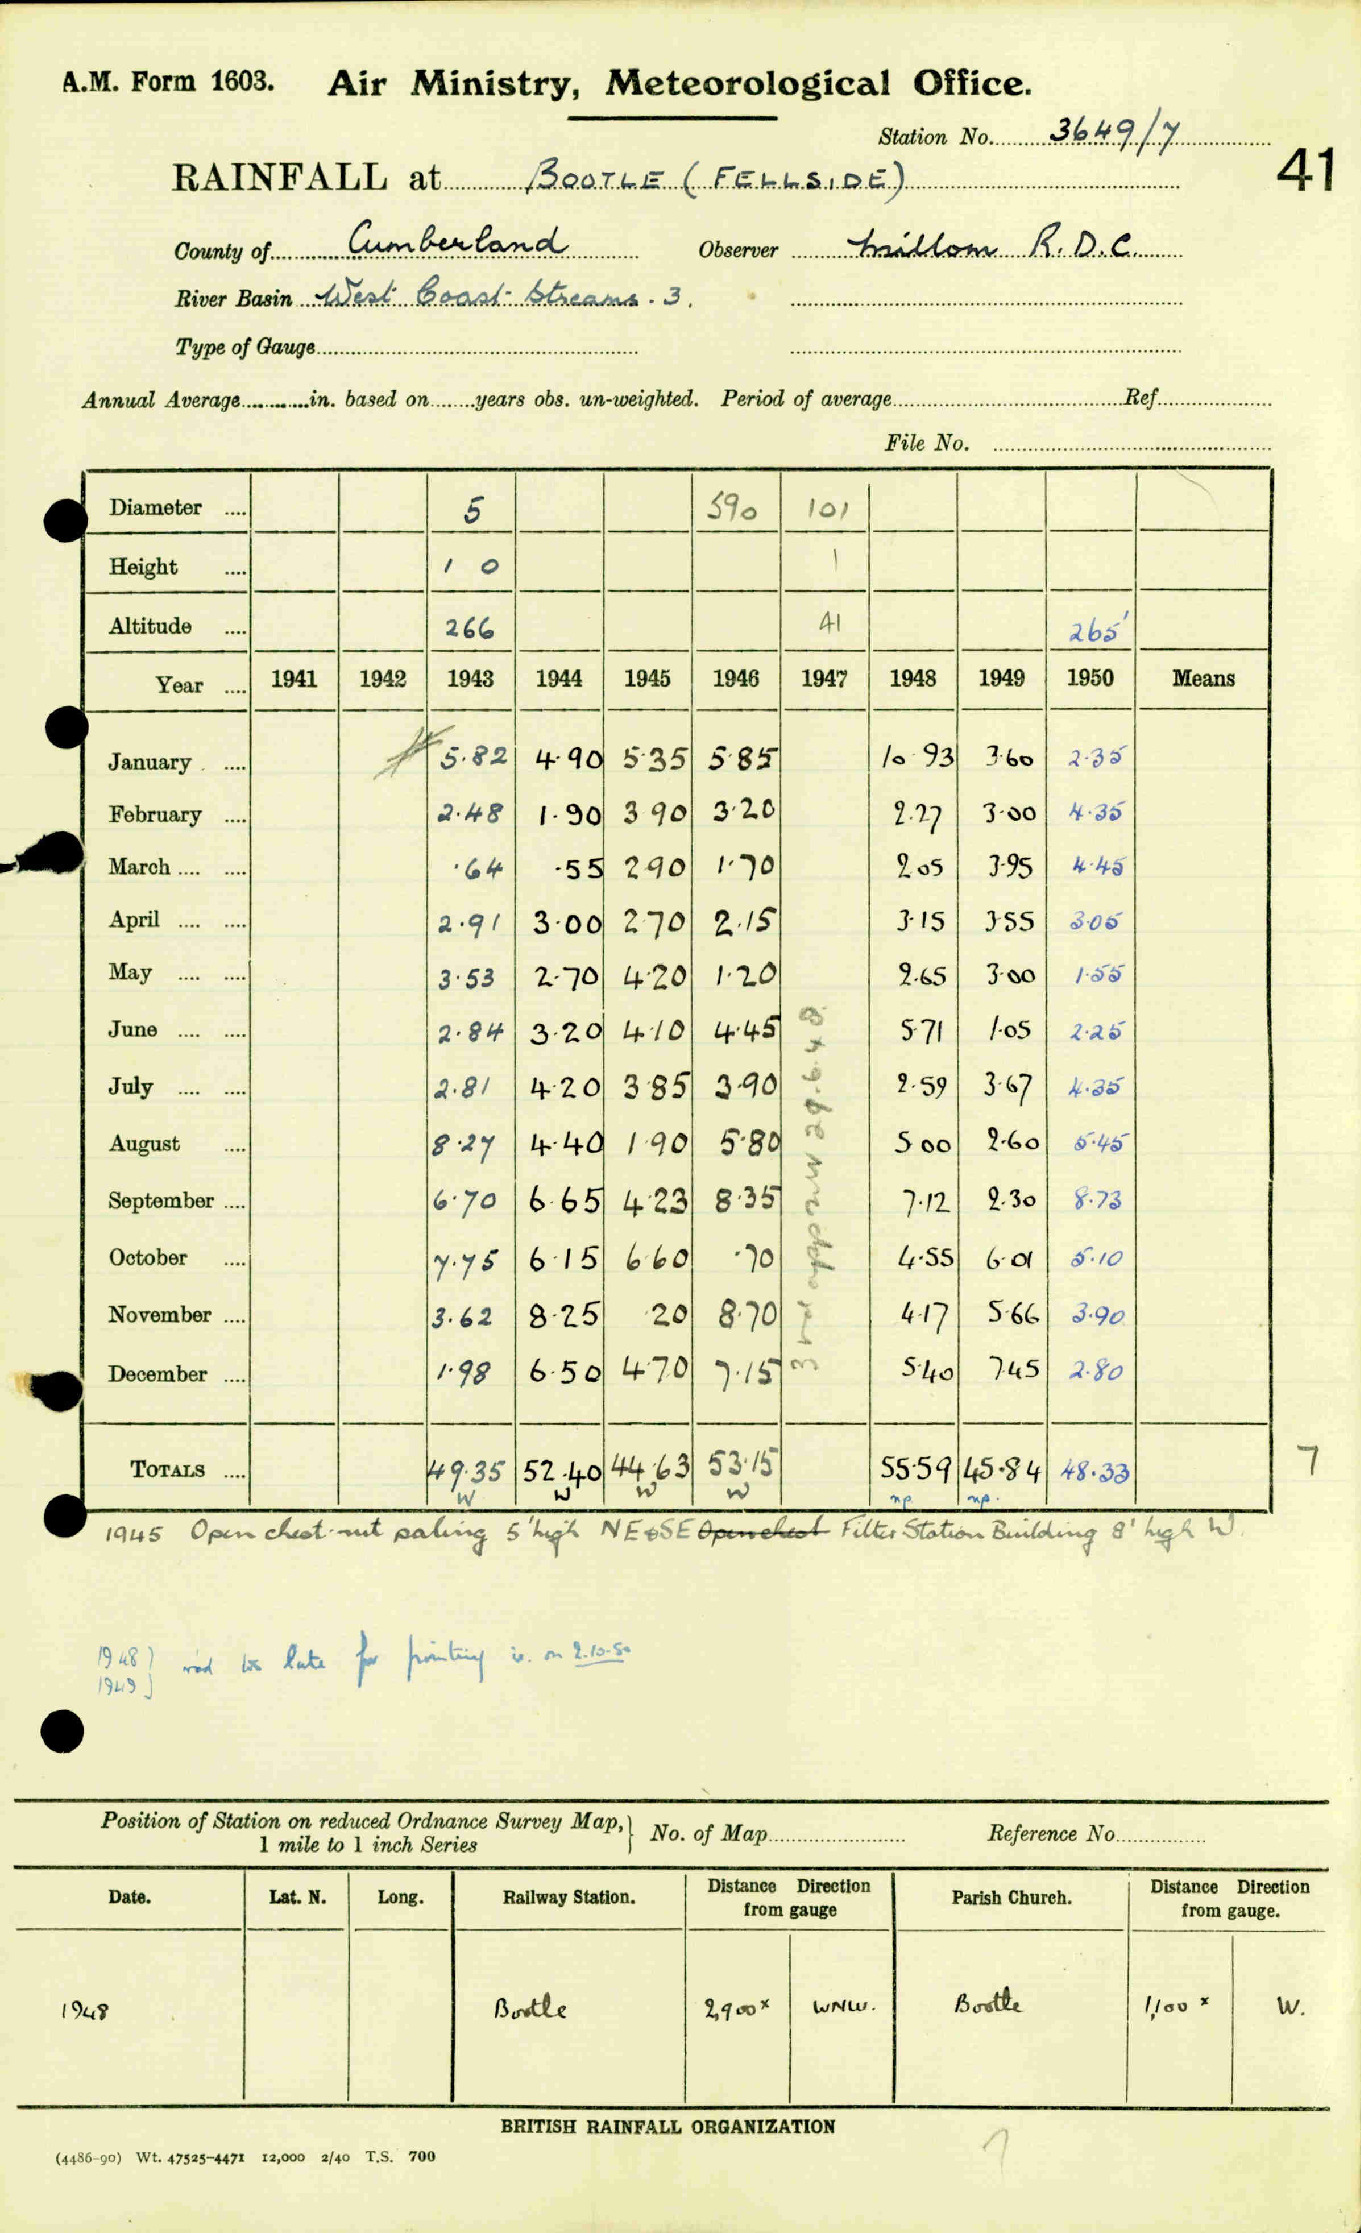 A.M. Form 1603. Air Ministry, Meteorological Office.
Station No. 3649/7
41
RAINFALL at BOOTLE (FELLSIDE)
County of Cumberland Observer Millom R.D.C.
River Basin West Coast Streams. 3.
Type of Gauge
Annual Average in. based on years obs. un-weighted. Period of average Ref
File No.
Diameter 5 590 101
Height 1 0 1
Altitude 266 41 265'
Year 1941 1942 1943 1944 1945 1946 1947 1948 1949 1950 Means
January 5.82 4.90 5.35 5.85 10.93 3.60 2.35
February 2.48 1.90 3.90 3.20 2.27 3.00 4.35
March .64 .55 2.90 1.70 2.05 3.95 4.45
April 2.91 3.00 2.70 2.15 3.15 3.55 3.05
May 3.53 2.70 4.20 1.20 2.65 3.00 1.55
June 2.84 3.20 4.10 4.45 5.71 1.05 2.25
July 2.81 4.20 3.85 3.90 2.59 3.67 4.35
August 8.27 4.40 1.90 5.80 5.00 2.60 5.45
September 6.70 6.65 4.23 8.35 7.12 2.30 8.73
October 7.75 6.15 6.60 .70 4.55 6.01 5.10
November 3.62 8.25 .20 8.70 4.17 5.66 3.90
December 1.98 6.50 4.70 7.15 5.40 7.45 2.80
29.6.48
TOTALS 49.35 52.40 44.63 53.15 55.59 45.84 48.33
7
W W W W np. np.
1945 Open chest-nut paling 5' high NE & SE Open chest Filter Station Building 8' high W.
1948 } rec'd too late for printing on 2.10.50
1949 }
Position of Station on reduced Ordnance Survey Map, } No. of Map Reference No.
1 mile to 1 inch Series
Date. Lat. N. Long. Railway Station. Distance Direction from gauge Parish Church. Distance Direction from gauge.
1948 Bootle 2,900x WNW. Bootle 1,100x W.
BRITISH RAINFALL ORGANIZATION
(4486-90) Wt. 47525-4471 12,000 2/40 T.S. 700